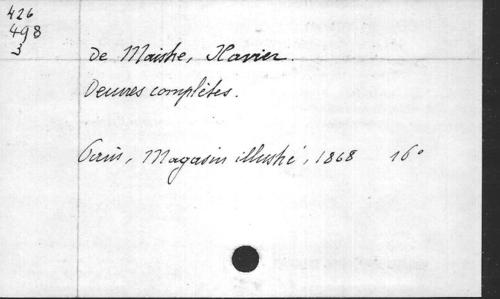 426
498
3
De Maistre, Xavier.
Oeuvres complètes.
Paris, Magasin illustré, 1868 16°